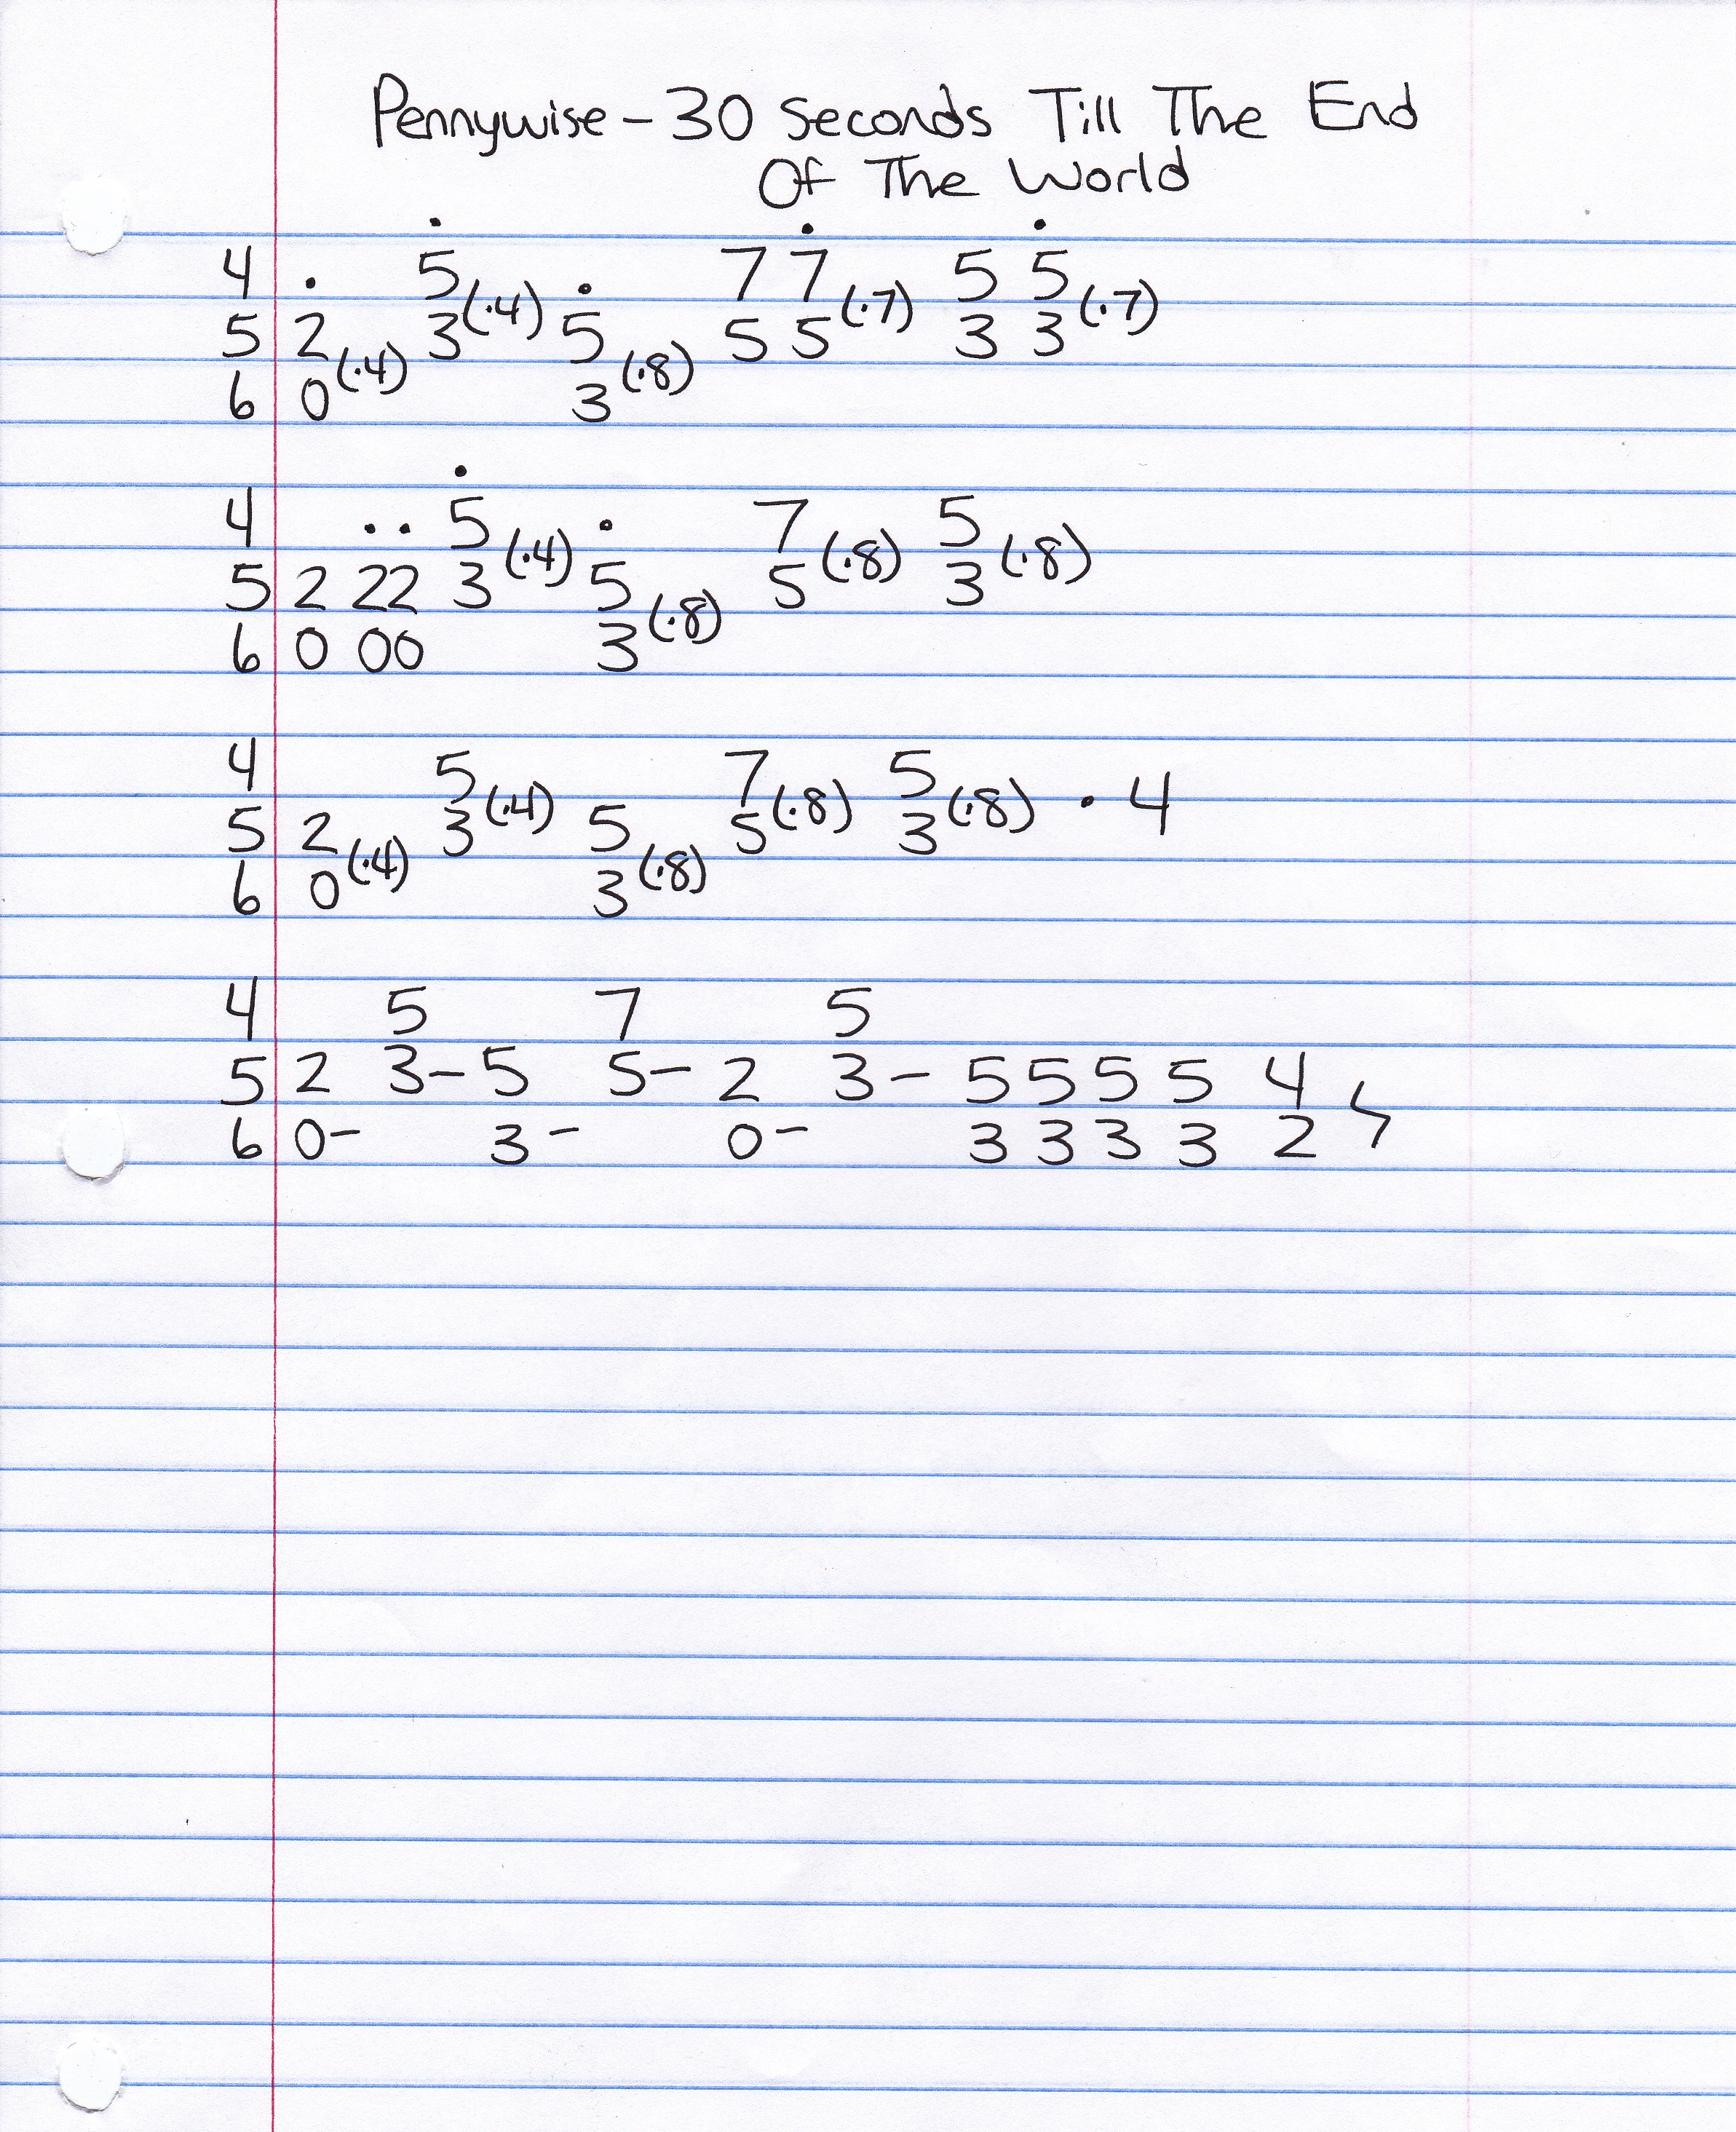 Pennywise - 30 Seconds Till The End
Of The World
4 . 5̇ (·4) . 7 7̇ (·7) 5 5̇ (·7)
5 2 (·4) 3 5 (·8) 5 5 3 3
6 0 3
4 . . 5̇ (·4) . 7 (·8) 5 (·8)
5 2 22 3 5 (·8) 5 3
6 0 00 3
4 5 (·4) 7 (·8) 5 (·8) · 4
5 2 (·4) 3 5 (·8) 5 3
6 0 3
4 5 7 5
5 2 3 - 5 5 - 2 3 - 5 5 5 5 4
6 0 - 3 - 0 - 3 3 3 3 2